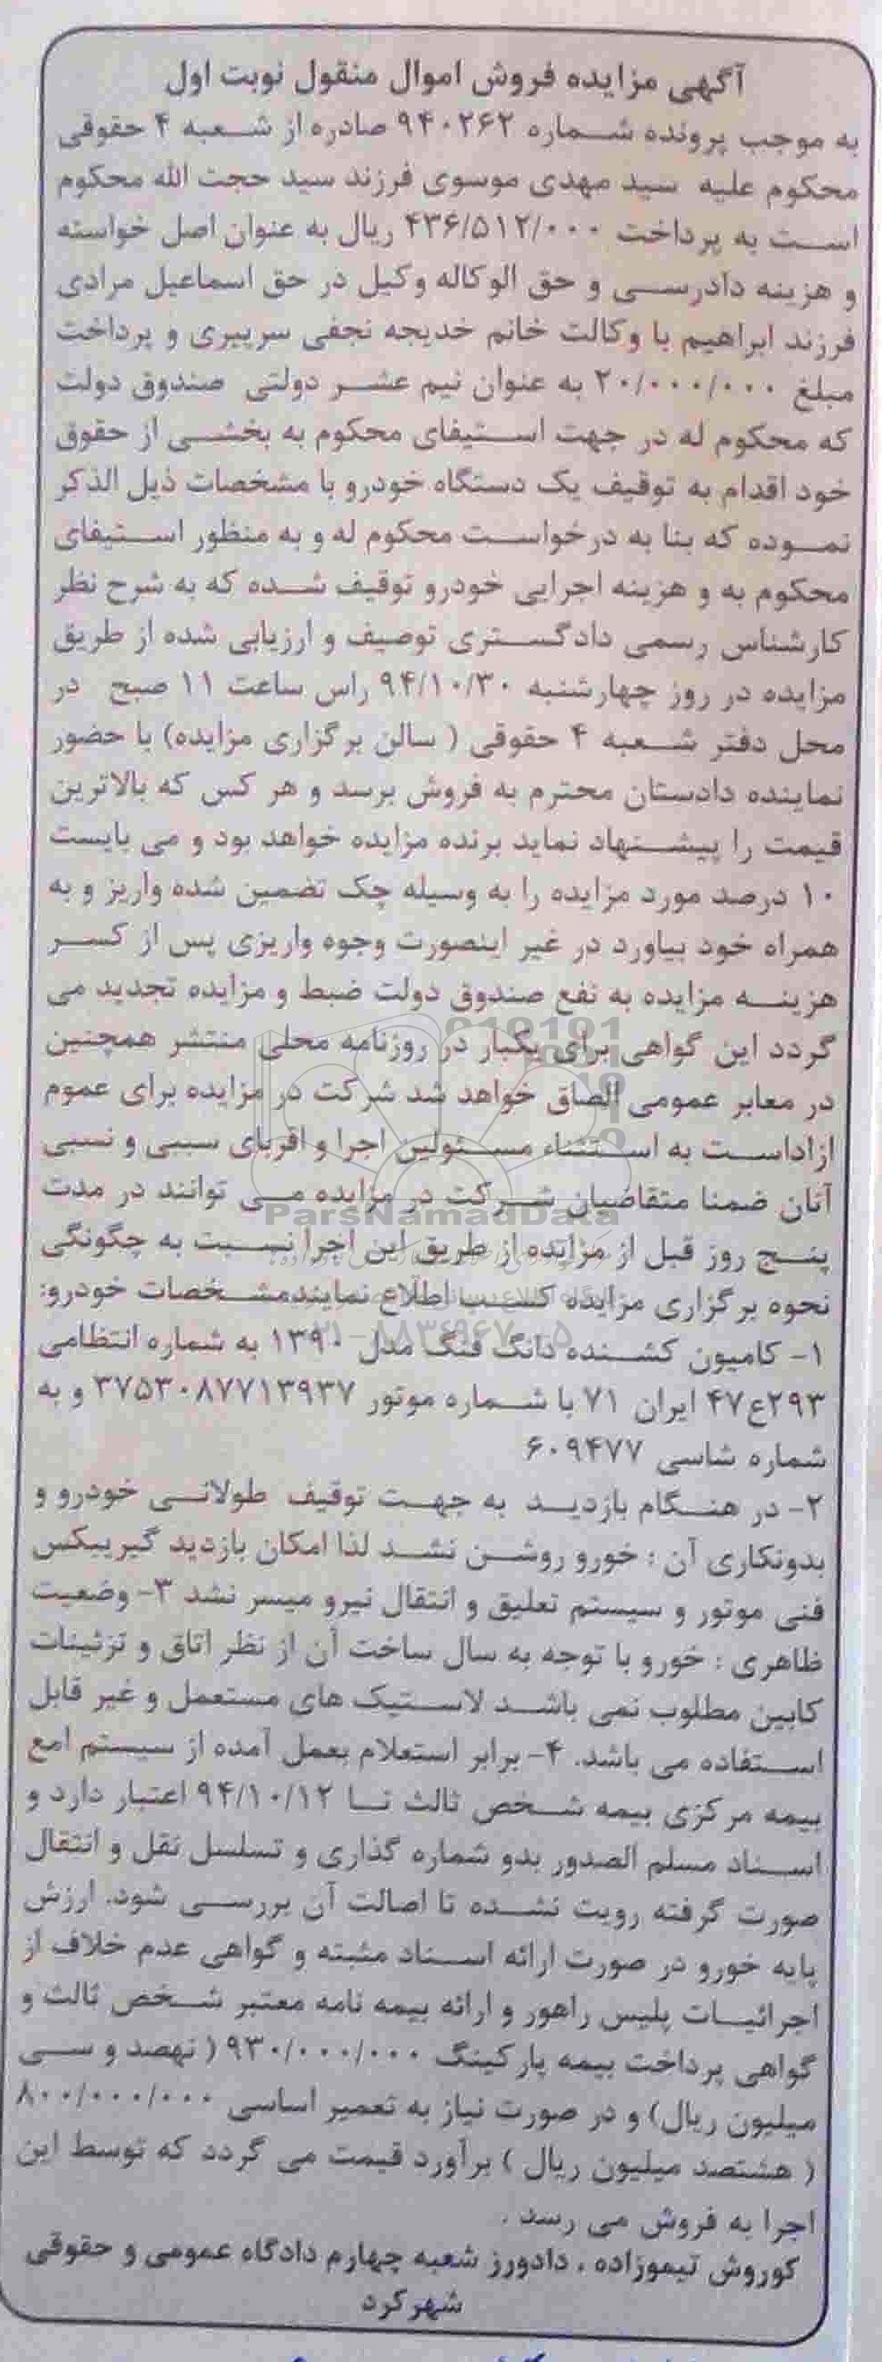 آگهی مزایده فروش اموال منقول نوبت اول
به موجب پرونده شماره ۹۴۰۲۶۲ صادره از شعبه ۴ حقوقی
محکوم علیه سید مهدی موسوی فرزند سید حجت الله محکوم
است به پرداخت ۴۳۶/۵۱۲/۰۰۰ ریال به عنوان اصل خواسته
و هزینه دادرسی و حق الوکاله وکیل در حق اسماعیل مرادی
فرزند ابراهیم با وکالت خانم خدیجه نجفی سرپیری و پرداخت
مبلغ ۲۰/۰۰۰/۰۰۰ به عنوان نیم عشر دولتی صندوق دولت
که محکوم له در جهت استیفای محکوم به بخشی از حقوق
خود اقدام به توقیف یک دستگاه خودرو با مشخصات ذیل الذکر
نموده که بنا به درخواست محکوم له و به منظور استیفای
محکوم به و هزینه اجرایی خودرو توقیف شده که به شرح نظر
کارشناس رسمی دادگستری توصیف و ارزیابی شده از طریق
مزایده در روز چهارشنبه ۹۴/۱۰/۳۰ راس ساعت ۱۱ صبح در
محل دفتر شعبه ۴ حقوقی ( سالن برگزاری مزایده) با حضور
نماینده دادستان محترم به فروش برسد و هر کس که بالاترین
قیمت را پیشنهاد نماید برنده مزایده خواهد بود و می بایست
۱۰ درصد مورد مزایده را به وسیله چک تضمین شده واریز و به
همراه خود بیاورد در غیر اینصورت وجوه واریزی پس از کسر
هزینه مزایده به نفع صندوق دولت ضبط و مزایده تجدید می
گردد این گواهی برای یکبار در روزنامه محلی منتشر همچنین
در معابر عمومی الصاق خواهد شد شرکت در مزایده برای عموم
ازاداست به استثناء مسئولین اجرا و اقربای سببی و نسبی
آنان ضمنا متقاضیان شرکت در مزایده می توانند در مدت
ParsNamadData
پنج روز قبل از مزایده از طریق این اجرا نسبت به چگونگی
نحوه برگزاری مزایده کسب اطلاع نمایندمشخصات خودرو:
۱- کامیون کشنده دانگ فنگ مدل ۱۳۹۰ به شماره انتظامی
۲۹۳ع۴۷ ایران ۷۱ با شماره موتور ۳۷۵۳۰۸۷۷۱۳۹۳۷ و به
شماره شاسی ۶۰۹۴۷۷
۲- در هنگام بازدید به جهت توقیف طولانی خودرو و
بدونکاری آن : خورو روشن نشد لذا امکان بازدید گیریبکس
فنی موتور و سیستم تعلیق و انتقال نیرو میسر نشد ۳- وضعیت
ظاهری : خورو با توجه به سال ساخت آن از نظر اتاق و تزئینات
کابین مطلوب نمی باشد لاستیک های مستعمل و غیر قابل
استفاده می باشد. ۴- برابر استعلام بعمل آمده از سیستم امع
بیمه مرکزی بیمه شخص ثالث تا ۹۴/۱۰/۱۲ اعتبار دارد و
اسناد مسلم الصدور بدو شماره گذاری و تسلسل نقل و انتقال
صورت گرفته رویت نشده تا اصالت آن بررسی شود. ارزش
پایه خورو در صورت ارائه اسناد مثبته و گواهی عدم خلاف از
اجرائیات پلیس راهور و ارائه بیمه نامه معتبر شخص ثالث و
گواهی پرداخت بیمه پارکینگ ۹۳۰/۰۰۰/۰۰۰ ( نهصد و سی
میلیون ریال) و در صورت نیاز به تعمیر اساسی ۸۰۰/۰۰۰/۰۰۰
( هشتصد میلیون ریال ) برآورد قیمت می گردد که توسط این
اجرا به فروش می رسد .
کوروش تیموزاده ، دادورز شعبه چهارم دادگاه عمومی و حقوقی
شهرکرد